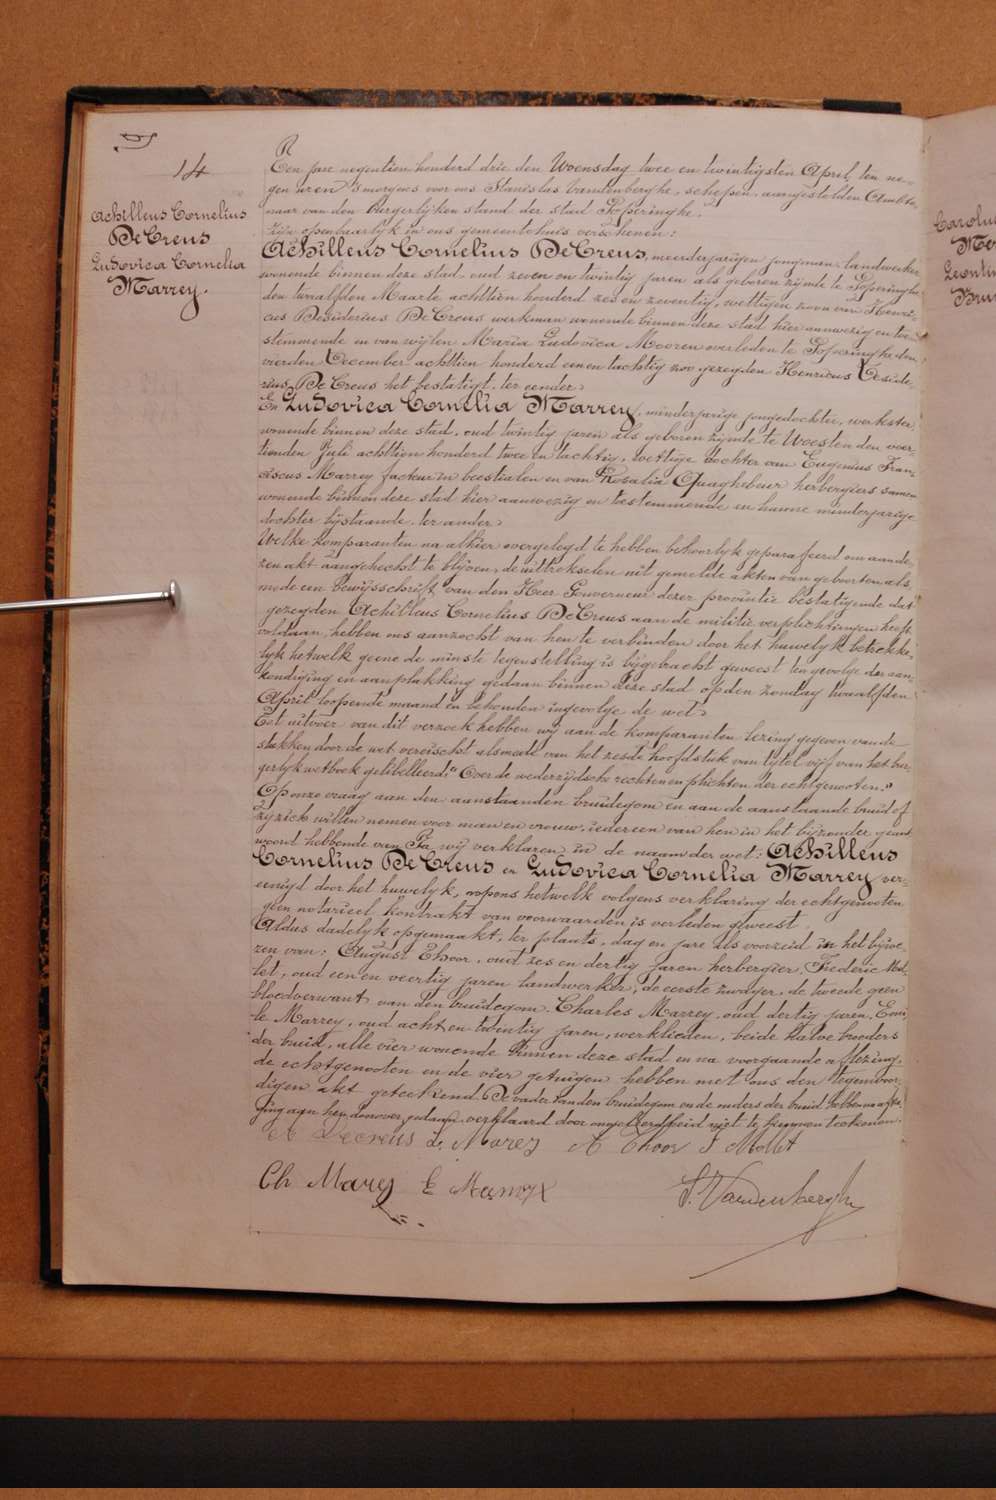 14
Achilleus Cornelius
DeCreus
Ludovica Cornelia
Marrey.
Een jare negentien honderd drie den Woensdag twee en twintigsten April, ten ne-
gen uren 's morgens voor ons Stanislas Vandenberghe, schepen, aangestelden Ambte-
naar van den Burgerlijken stand der stad Poperinghe.
Zijn openbaarlijk in ons gemeentehuis verschenen:
Achilleus Cornelius DeCreus, meerderjarigen jongman, landwerker
wonende binnen deze stad, oud zeven en twintig jaren als geboren zijnde te Poperinghe
den twaalfden Maarte achttien honderd zes en zeventig, wettigen zoon van Henri-
cus Desiderius DeCreus werkman wonende binnen deze stad hier aanwezig en toe-
stemmende en van wijlen Maria Ludovica Mooren overleden te Poperinghe den
vierden December achttien honderd een en tachtig zoo gezeyden Henricus Deside-
rius DeCreus het bestatigt, ter eender.
En Ludovica Cornelia Marrey, minderjarige jongedochter, werkster,
wonende binnen deze stad, oud twintig jaren als geboren zijnde te Woesten den veer-
tienden Juli achttien honderd twee en tachtig, wettige dochter van Eugenius Fran-
ciscus Marrey facteur in beestialen en van Rosalia Quaghebeur herbergiers samen
wonende binnen deze stad hier aanwezig en toestemmende en hunne minderjarige
dochter bijstaande, ter ander.
Welke komparanten na alhier overgelegd te hebben behoorlijk geparafeerd om aan de-
zen akt aangehecht te blijven, de uittrekselen uit gemelde akten van geboorten als-
mede een bewijsschrift van den Heer Gouverneur dezer provincie bestatigende dat
gezeyden Achilleus Cornelius DeCreus aan de militie verplichtingen heeft
voldaan, hebben ons aanzocht van hen te verbinden door het huwelyk betrekke-
lyk hetwelk geene de minste tegenstelling is bijgebracht geweest ten gevolge der aan-
kondiging en aanplakking gedaan binnen deze stad op den zondag twaalfden
April loopende maand en behouden ingevolge de wet.
Tot uitvoer van dit verzoek hebben wij aan de komparanten lezing gegeven van de
stukken door de wet vereischt alsmede van het zesde hoofdstuk van tytel vijf van het bur-
gerlyk wetboek getibelleerd: "Over de wederzijdsche rechten en plichten der echtgenooten."
Op onze vraag aan den aanstaanden bruidegom en aan de aanstaande bruid of
zij zich willen nemen voor man en vrouw, iedereen van hen in het bijzonder geant-
woord hebbende van Ja, wij verklaren in de naam der wet: Achilleus
Cornelius DeCreus en Ludovica Cornelia Marrey ver-
eenigd door het huwelyk, nopens hetwelk volgens verklaring der echtgenooten
geen notarieel kontrakt van voorwaarden is verleden geweest.
Aldus dadelyk opgemaakt, ter plaats, dag en jare als voorzeid in het bijwe-
zen van: August Thoor, oud zes en dertig jaren herbergier, Frederic Mol-
let, oud een en veertig jaren landwerker, de eerste zwager, de tweede geen
bloedverwant van den bruidegom. Charles Marrey, oud dertig jaren, Emi-
le Marrey, oud acht en twintig jaren, werklieden, beide halve broeders
der bruid, alle vier wonende binnen deze stad en na voorgaande aflezing,
de echtgenooten en de vier getuigen hebben met ons den tegenwoor-
digen akt geteekend. De vader van den bruidegom en de ouders der bruid hebben na afvra-
ging aan hen daarover gedaan, verklaard door ongeleerdheid niet te kunnen teekenen.
A Decreus L. Marey A Thoor F Mollet
Ch Marey E Marrey S. Vandenberghe
Carolus
Leontin